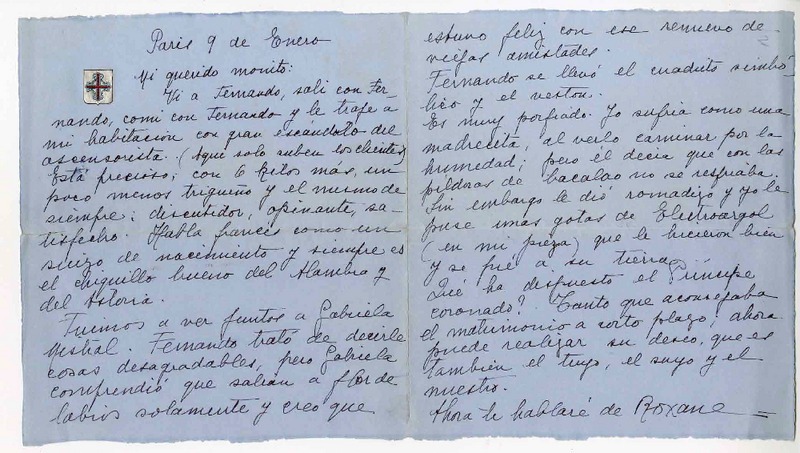 Paris 9 de Enero
Mi querido monito:
Vi a Fernando, salí con Fer-
nando, comí con Fernando y le traje a
mi habitación con gran escándalo del
ascensorista. (Aquí solo suben los clientes)
Está precioso; con 6 kilos más, un
poco menos trigueño y el mismo de
siempre; discutidor, opinante, sa-
tisfecho. Habla francés como un
suizo de nacimiento y siempre es
el chiquillo bueno del Alambra y
del Astoria.
Fuimos a ver juntos a Gabriela
Mistral. Fernando trató de decirle
cosas desagradables, pero Gabriela
comprendió que salían a flor de
labios solamente y creo que
estuvo feliz con ese renuevo de
viejas amistades.
Fernando se llevó el cuadrito simbó-
lico y el veston.
Es muy porfiado. Yo sufría como una
madrecita, al verlo caminar por la
humedad; pero él decía que con las
píldoras de bacalao no se resfriaba.
Sin embargo le dió romadizo y yo le
puse unas gotas de Electroargol
(en mi pieza) que le hicieron bien
y se fué a su tierra.
Qué ha dispuesto el Príncipe
coronado? Tanto que aconsejaba
el matrimonio a corto plazo, ahora
puede realizar su deseo, que es
también el tuyo, el suyo y el
nuestro.
Ahora le hablaré de Roxane